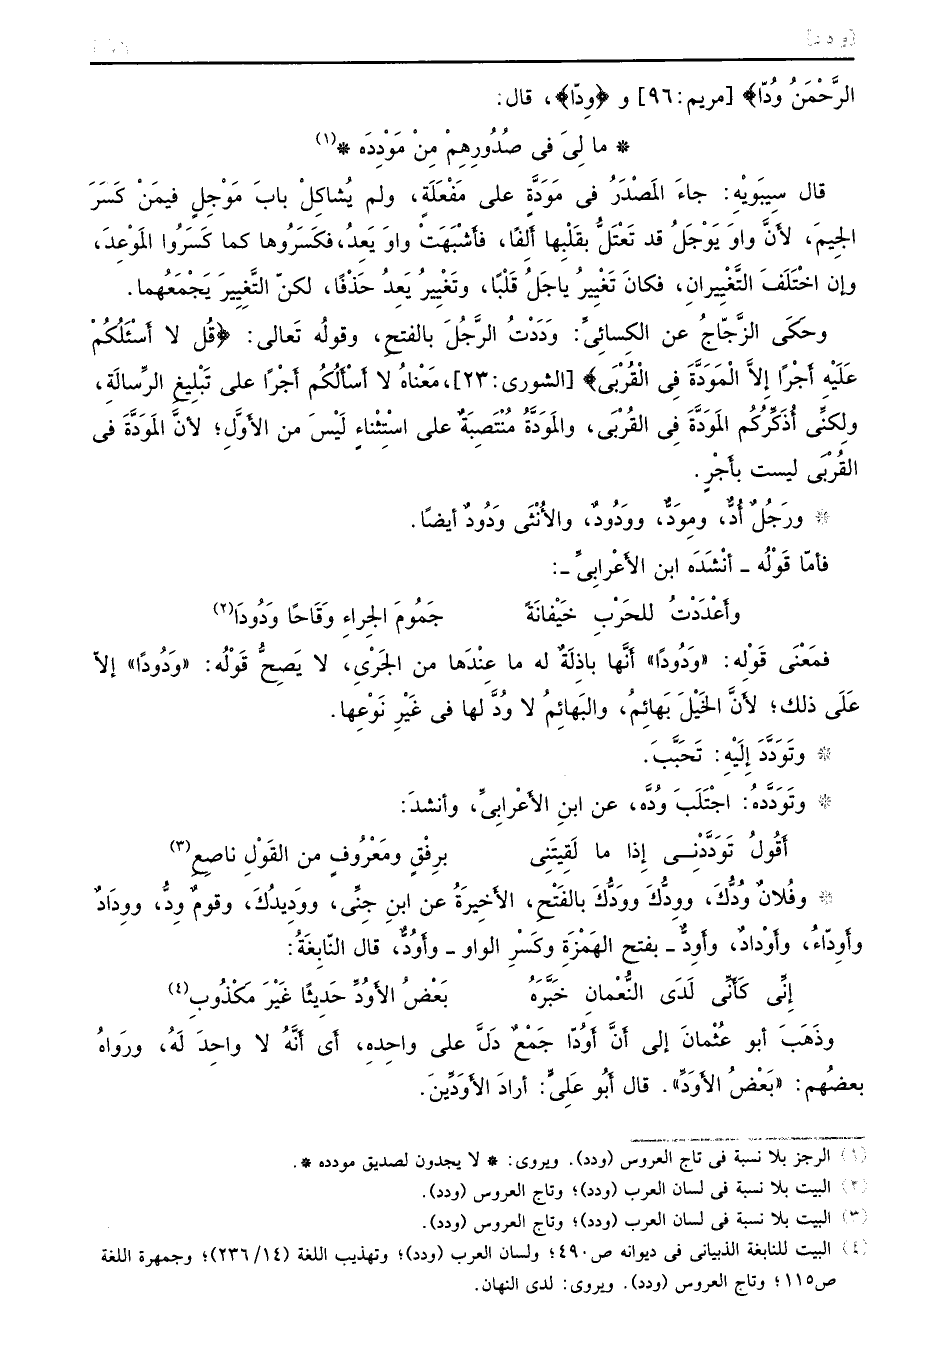 الرَّحْمَنُ وُدّا﴾ [مريم: ٩٦] و ﴿ودّا﴾، قال:
* ما لِىَ فى صُدُورِهِمْ مِنْ مَوْدِدَه *(١)
قال سيبَوَيْهِ: جاءَ المَصْدَرُ فى مَوَدَّةٍ على مَفْعَلَةٍ، ولم يُشاكِلْ بابَ مَوْجلٍ فيمَنْ كَسَرَ
الجيمَ، لأنَّ واوَ يَوْجَلُ قد تَعْتَلُّ بقَلْبِها ألفًا، فأشْبَهَتْ واوَ يَعدُ، فكَسَرُوها كما كَسَرُوا المَوْعدَ،
وإن اخْتَلَفَ التَّغْييران، فكانَ تَغْييرُ ياجَلُ قَلْبًا، وتَغْييرُ يَعدُ حَذْفًا، لكنّ التَّغْييرَ يَجْمَعُهما.
وحكَى الزَّجّاجُ عن الكسائىِّ: وَدَدْتُ الرَّجُلَ بالفتح، وقولُه تَعالى: ﴿قُل لا أسْئَلُكُمْ
عَلَيْهِ أجْرًا إلاَّ الْمَوَدَّةَ فِى الْقُرْبَى﴾ [الشورى: ٢٣]، مَعْناهُ لا أسألُكُم أجْرًا على تَبْلِيغِ الرِّسالَةِ،
ولكنِّى أُذَكِّرُكُم المَوَدَّةَ فِى القُرْبَى، والمَوَدَّةُ مُنْتَصِبَةٌ على اسْتِثْناءٍ لَيْسَ من الأوَّلِ؛ لأنَّ المَوَدَّةَ فى
القُرْبَى ليست بأجْرٍ.
* ورَجُلٌ أُدٌّ، ومِودٌّ، ووَدُودٌ، والأُنْثَى وَدُودٌ أيضًا.
فأمّا قَوْلُه ـ أنْشَدَه ابن الأعْرابىِّ ـ:
وأعْدَدْتُ للحَرْبِ خَيْفانَةً جَمُومَ الجِراءِ وَقَاحًا وَدُودَا(٢)
فمَعْنَى قَوْلِه: «وَدُودًا» أنَّها باذِلَةٌ له ما عِنْدَها من الجَرْىِ، لا يَصحُّ قَوْلُه: «وَدُودًا» إلاّ
عَلَى ذلك؛ لأنَّ الخَيْلَ بَهائِمُ، والبَهائِمُ لا وُدَّ لها فى غَيْرِ نَوْعِها.
* وتَوَدَّدَ إلَيْهِ: تَحَبَّبَ.
* وتَوَدَّدهُ: اجْتَلَبَ وُدَّه، عن ابنِ الأعْرابىِّ، وأنشدَ:
أقُولُ تَوَدَّدْنِى إذا ما لَقِيتَنِى برِفْقٍ ومَعْرُوفٍ من القَوْلِ ناصِعِ(٣)
* وفُلانٌ وُدُّكَ، ووِدُّكَ ووَدُّكَ بالفَتْحِ، الأخيرَةُ عن ابنِ جِنِّى، ووَدِيدُكَ، وقومٌ ودُّ، وودَادٌ
وأوِدّاءُ، وأوْدادٌ، وأوِدٌّ ـ بفتح الهَمْزَة وكَسْرِ الواو ـ وأوُدٌّ، قال النّابغَةُ:
إنِّى كَأنِّى لَدَى النُّعْمان خَبَّرَهُ بَعْضُ الأوُدِّ حَدِيثًا غَيْرَ مَكْذُوبِ(٤)
وذَهَبَ أبو عُثْمانَ إلى أنَّ أوُدّا جَمْعٌ دَلَّ على واحِدِه، أى أنَّهُ لا واحِدَ لَهُ، ورَواهُ
بعضُهم: «بَعْضُ الأوَدِّ». قال أبُو عَلىٍّ: أرادَ الأوَدِّينَ.
(١) الرجز بلا نسبة فى تاج العروس (ودد). ويروى: * لا يجدون لصديق مودده *.
(٢) البيت بلا نسبة فى لسان العرب (ودد)؛ وتاج العروس (ودد).
(٣) البيت بلا نسبة فى لسان العرب (ودد)؛ وتاج العروس (ودد).
(٤) البيت للنابغة الذبيانى فى ديوانه ص٤٩٠؛ ولسان العرب (ودد)؛ وتهذيب اللغة (١٤/ ٢٣٦)؛ وجمهرة اللغة
ص١١٥؛ وتاج العروس (ودد). ويروى: لدى النهان.